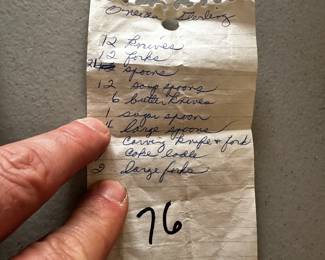 Oneida Sterling
12 knives
12 forks
21 spoons
12 soup spoons
6 butter knives
1 sugar spoon
large spoons
Carving knife & fork
Cake
2 large forks
76